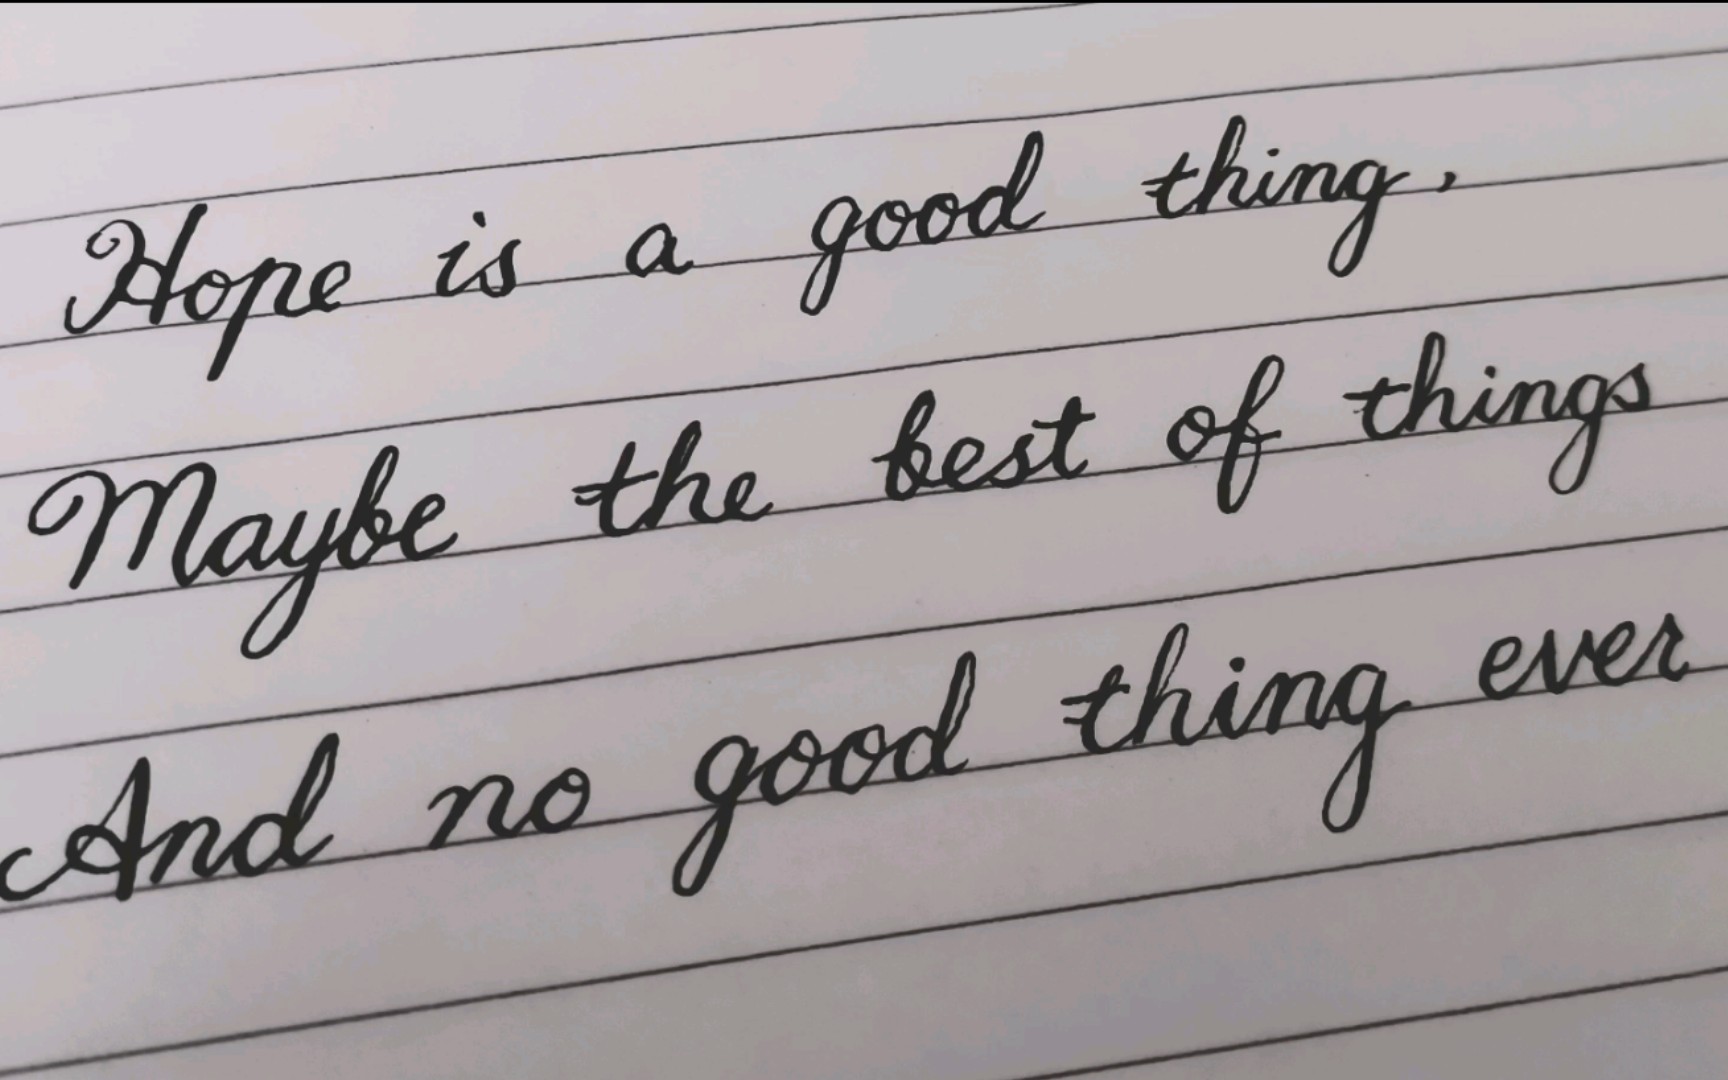 Hope is a good thing,
Maybe the best of things
And no good thing ever